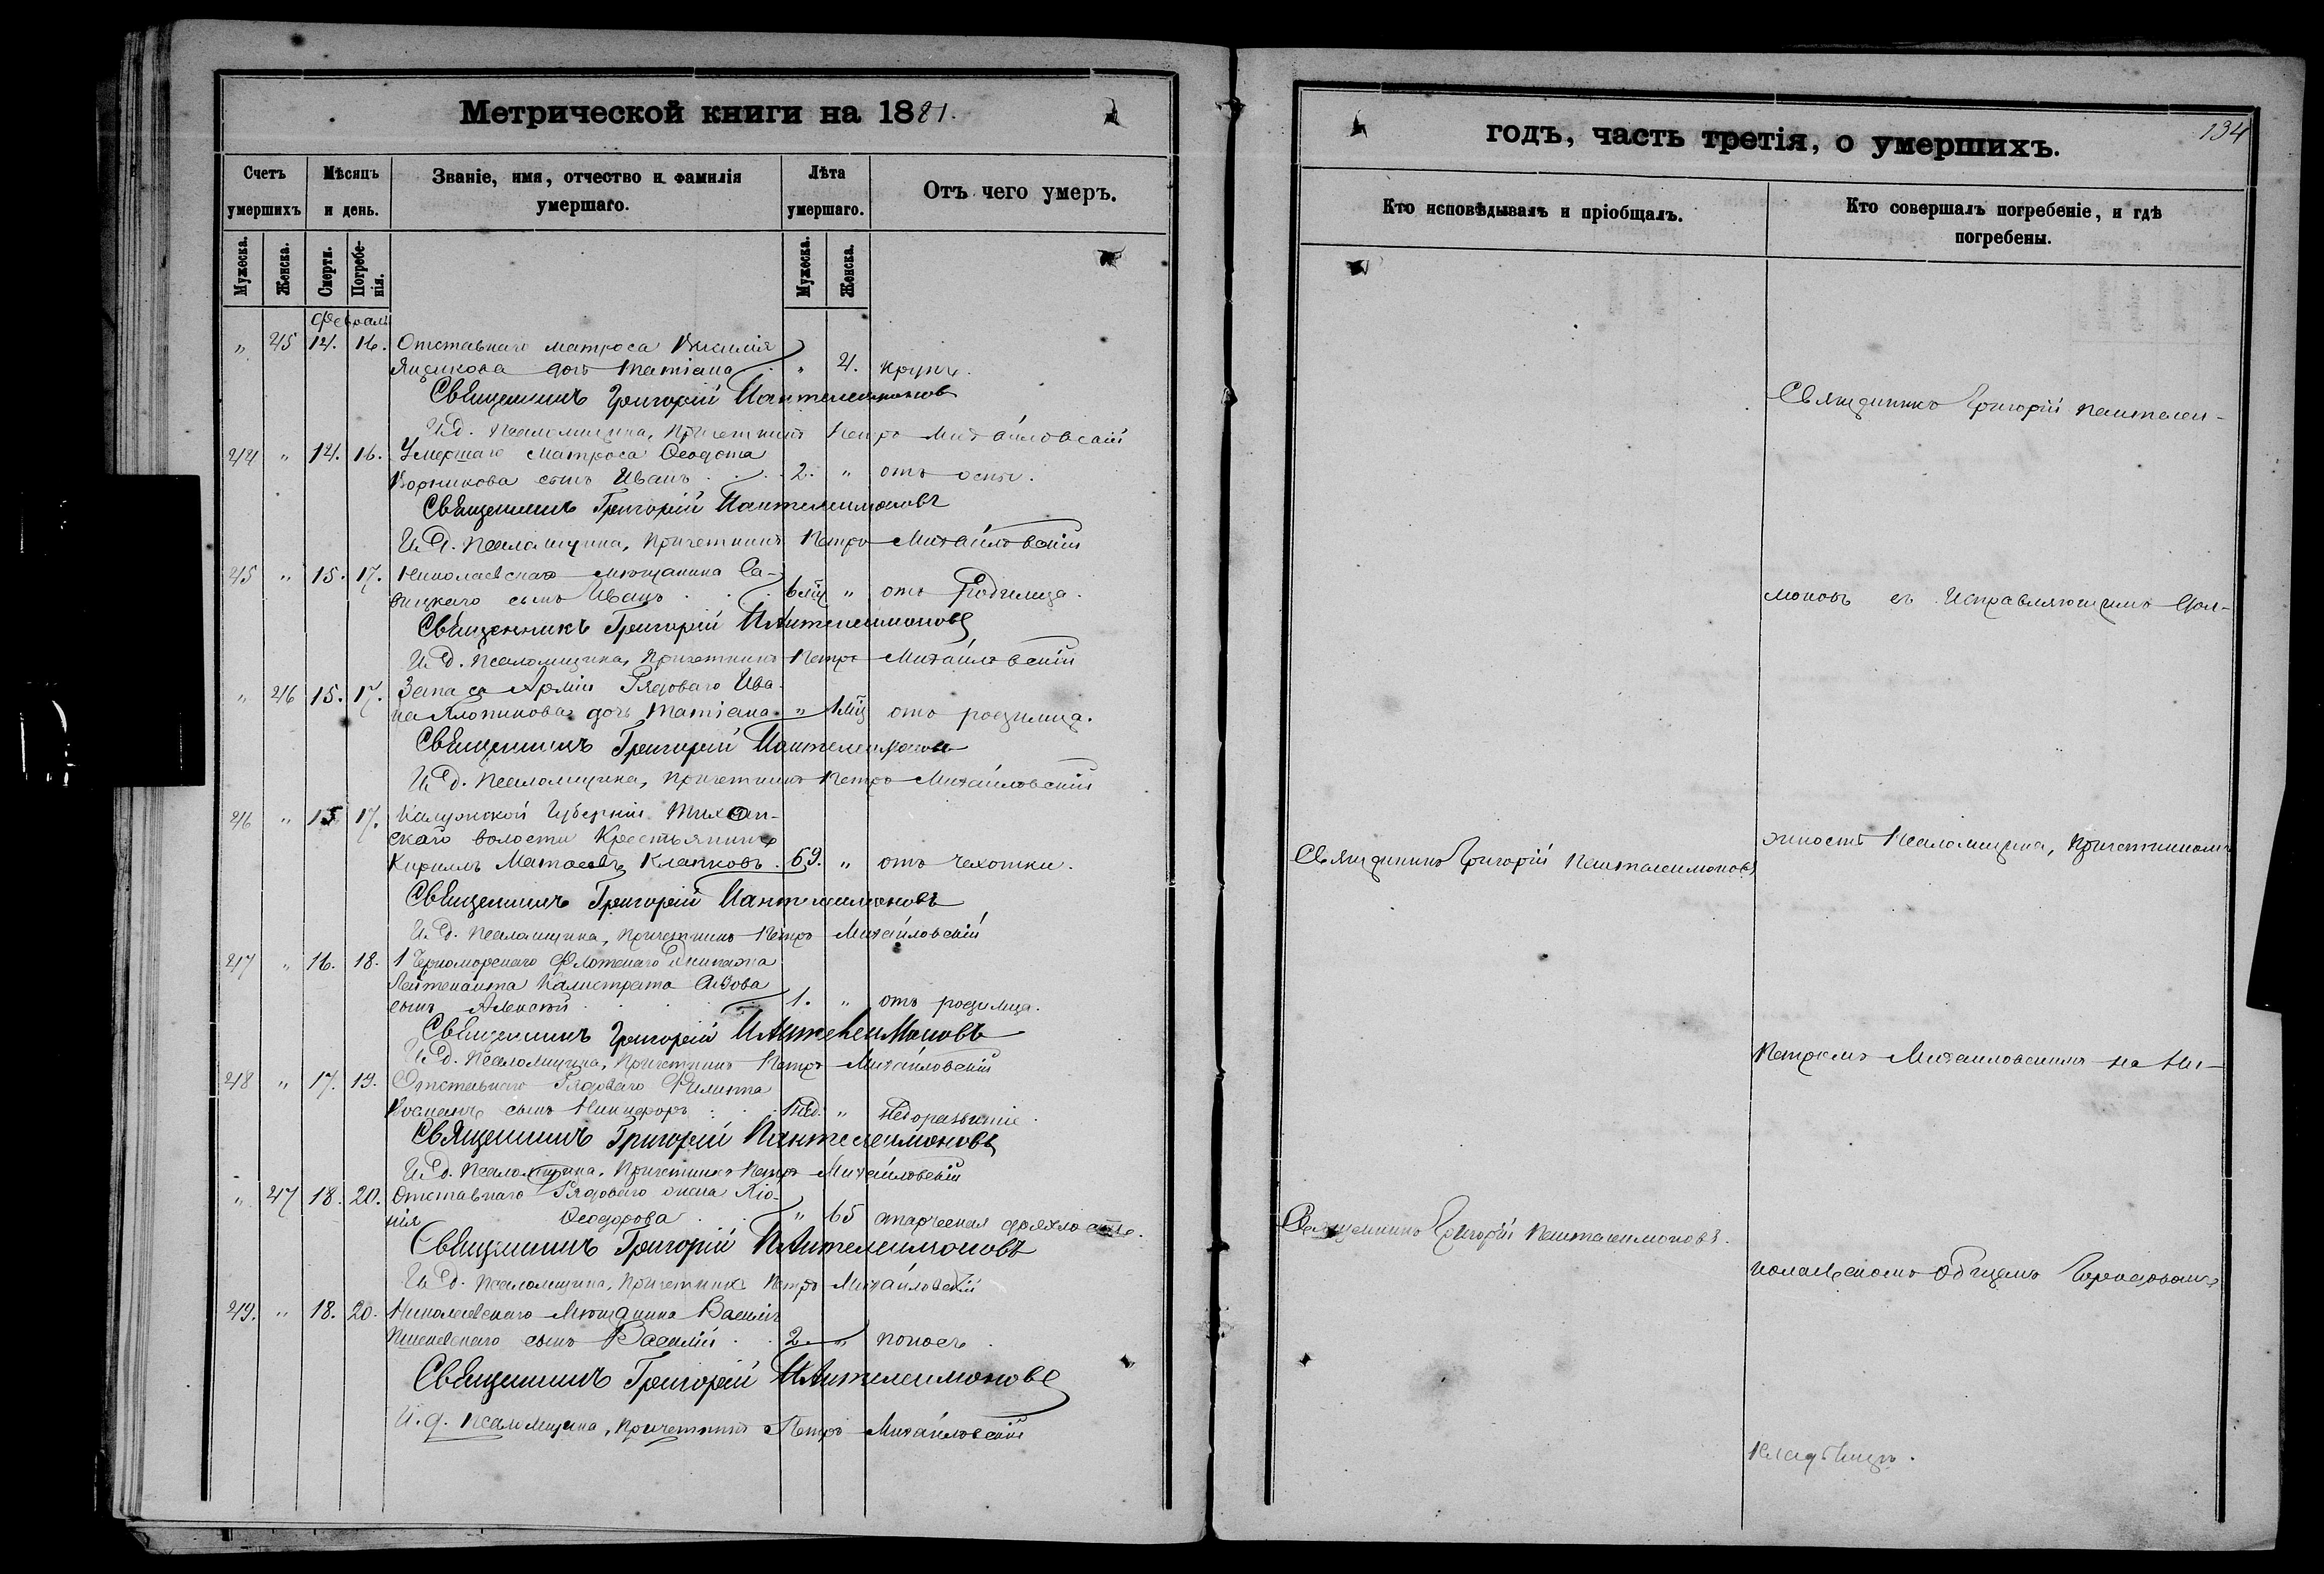 Метрической книги на 1881.
Счетъ умершихъ
Мѣсяцъ и день.
Званіе, имя, отчество и фамилія умершаго.
Лѣта умершаго.
Отъ чего умеръ.
Мужеска.
Женска.
Смерти.
Погребе-
нія.
Мужеска.
Женска.
Февраль
" 45 14. 16. Отставнаго матроса Василія
Ящикова дочь Татіана " 4. крупъ.
Священникъ Григорій Пантелеимоновъ
И.д. Псаломщика, Причетникъ Петръ Михайловскій
44 " 14. 16. Умершаго матроса Ѳеодота
сынъ Иванъ 2. " отъ оспы.
Священникъ Григорій Пантелеимоновъ
И.д. Псаломщика, Причетникъ Петръ Михайловскій
45 " 15. 17. Николаевскаго мѣщанина Са-
вицкаго сынъ Иванъ 6 мѣц " отъ Родимца.
Священникъ Григорій Пантелеимоновъ
И.д. Псаломщика, Причетникъ Петръ Михайловскій
" 46 15. 17. Запаса Арміи Рядоваго Ива-
на дочь Татіана " 1 мѣц отъ родимца.
Священникъ Григорій Пантелеимоновъ
И.д. Псаломщика, Причетникъ Петръ Михайловскій
46 " 15 17. Калужской Губерніи
скаго волости Крестьянинъ
Кирилъ 69. " отъ чахотки.
Священникъ Григорій Пантелеимоновъ
И.д. Псаломщика, Причетникъ Петръ Михайловскій
47 " 16. 18. 1 Черноморскаго Флотскаго Экипажа
Лейтенанта Калистрата
сынъ Алексѣй 1. " отъ родимца.
Священникъ Григорій Пантелеимоновъ
И.д. Псаломщика, Причетникъ Петръ Михайловскій
48 " 17. 19. Отставнаго Рядоваго Филиппа
сынъ Никифоръ " Недоразвитіе.
Священникъ Григорій Пантелеимоновъ
И.д. Псаломщика, Причетникъ Петръ Михайловскій
" 47 18. 20. Отставнаго Рядоваго жена
Ѳеодорова " 65 старческая дряхлость.
Священникъ Григорій Пантелеимоновъ
И.д. Псаломщика, Причетникъ Петръ Михайловскій
49. " 18. 20. Николаевскаго Мѣщанина Василія
сынъ Василій 2. " поносъ.
Священникъ Григорій Пантелеимоновъ
И.д. Псаломщика, Причетникъ Петръ Михайловскій
134
годъ, часть третія, о умершихъ.
Кто исповѣдывалъ и пріобщалъ.
Кто совершалъ погребеніе, и гдѣ
погребены.
Священникъ Григорій Пантелеи-
моновъ съ Исправляющимъ дол-
Священникъ Григорій Пантелеимоновъ
жность Псаломщика, Причетникомъ
Петромъ Михайловскимъ на Ни-
Священникъ Григорій Пантелеимоновъ.
колаевскомъ общемъ Городскомъ
Кладбищѣ.